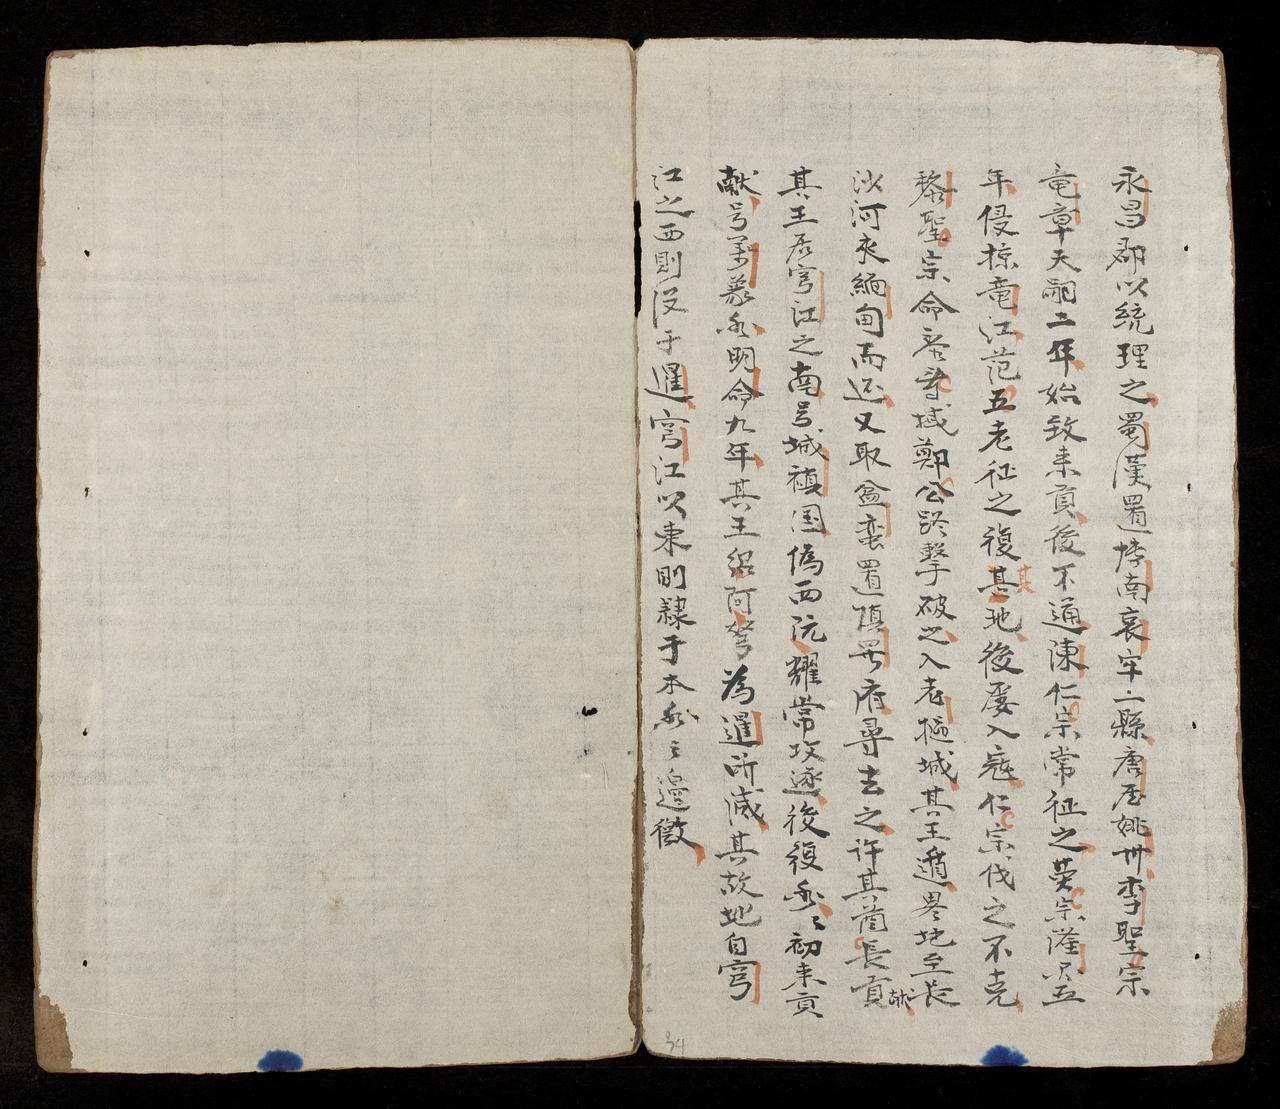 永昌郡以統理之蜀漢置博南哀牢二縣唐爲姚州李聖宗
竜章天嗣二年始致来貢後不通陳仁宗常征之英宗隆興五
年侵掠竜江范五老征之復其地後屡入寇仁宗伐之不克
其
黎聖宗命帝等域鄭公路擊破之入老撾城其王遁畧地至長
沙河夾緬甸而还又取盆蛮置鎮寧府尋去之許其酋長貢
献
其王居穹江之南号城禎国偽西阮耀常攻逐後復我〻初来貢
献号萬象我明命九年其王紹阿弩為暹所滅其故地自穹
江之西則没于暹穹江以東則隷于本我〻邊徼
34